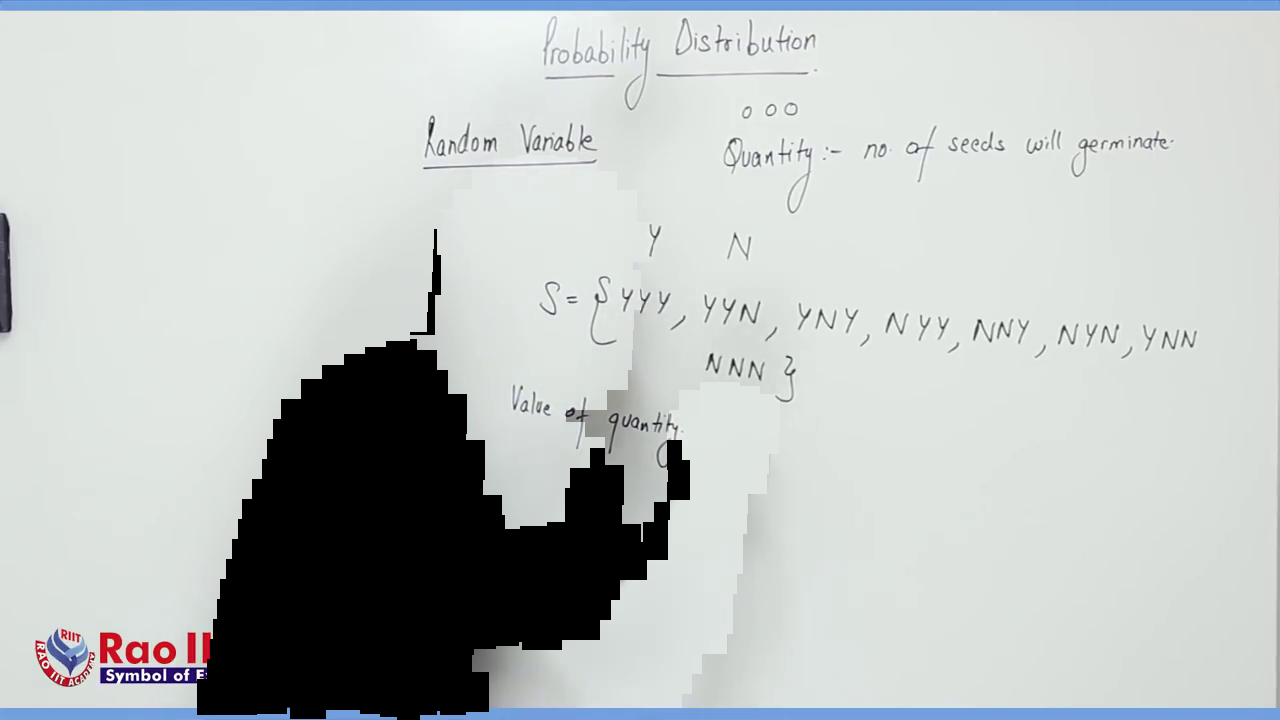 Probability Distribution
Random Variable
o o o
Quantity:- no. of seeds will germinate.
Y N
S = { YYY, YYN, YNY, NYY, NNY, NYN, YNN
NNN }
Value of quantity.
RIIT
RAO IIT ACADEMY
Rao II
Symbol of E